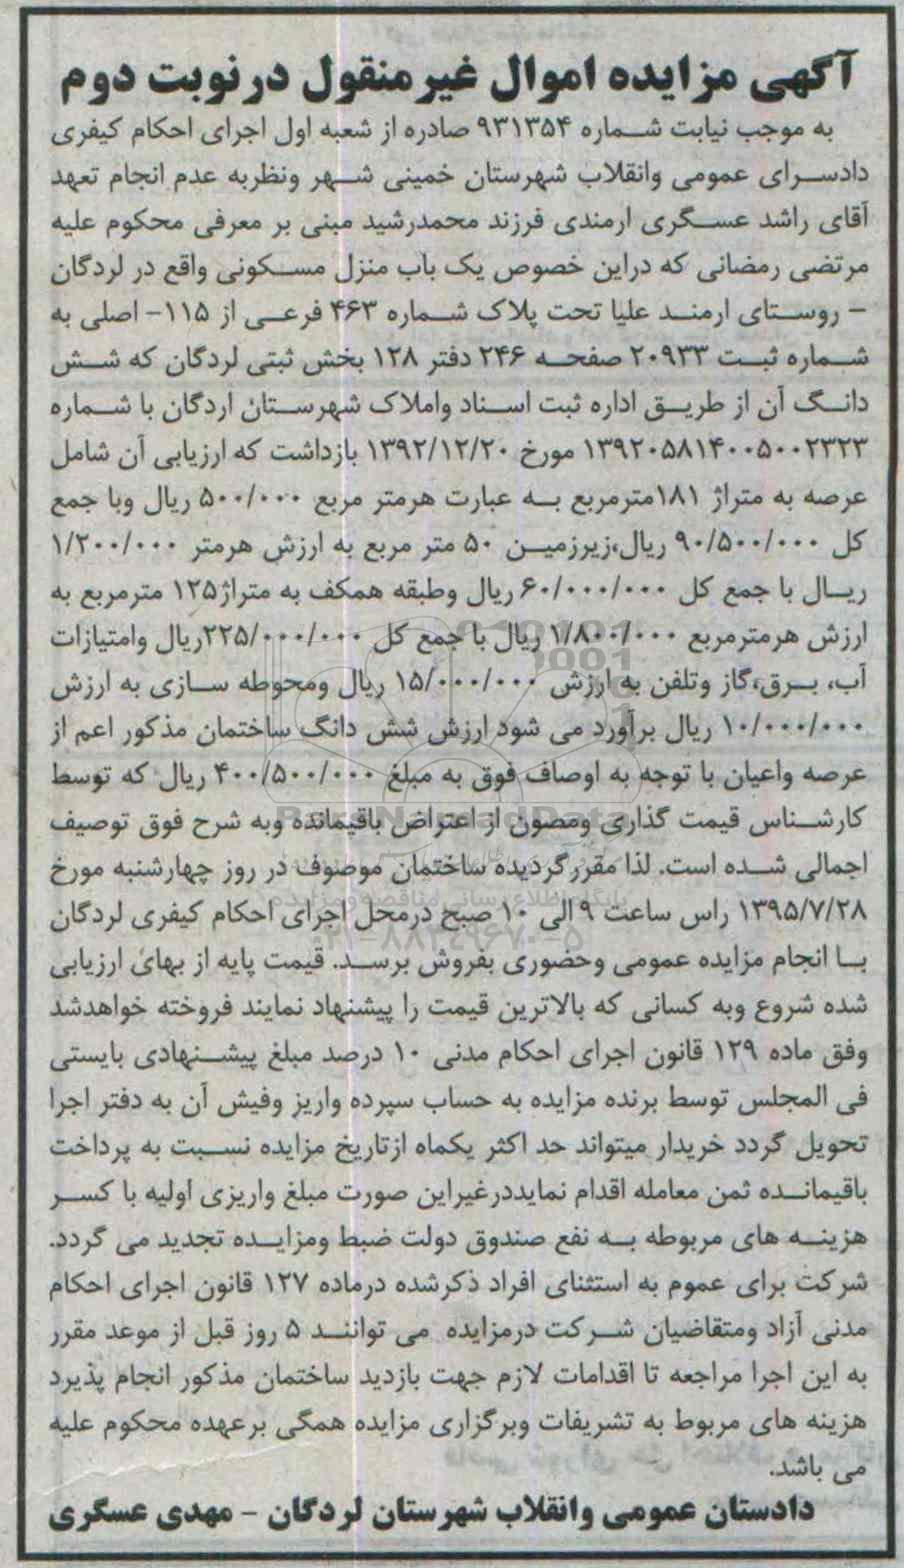 آگهی مزایده اموال غیرمنقول درنوبت دوم
به موجب نیابت شماره ۹۳۱۳۵۴ صادره از شعبه اول اجرای احکام کیفری
دادسرای عمومی وانقلاب شهرستان خمینی شهر ونظربه عدم انجام تعهد
آقای راشد عسگری ارمندی فرزند محمدرشید مبنی بر معرفی محکوم علیه
مرتضی رمضانی که دراین خصوص یک باب منزل مسکونی واقع در لردگان
– روستای ارمند علیا تحت پلاک شماره ۴۶۳ فرعی از ۱۱۵- اصلی به
شماره ثبت ۲۰۹۳۳ صفحه ۲۴۶ دفتر ۱۲۸ بخش ثبتی لردگان که شش
دانگ آن از طریق اداره ثبت اسناد واملاک شهرستان اردگان با شماره
۱۳۹۲۰۵۸۱۴۰۰۵۰۰۲۳۲۳ مورخ ۱۳۹۲/۱۲/۲۰ بازداشت که ارزیابی آن شامل
عرصه به متراژ ۱۸۱مترمربع به عبارت هرمتر مربع ۵۰۰/۰۰۰ ریال وبا جمع
کل ۹۰/۵۰۰/۰۰۰ ریال،زیرزمین ۵۰ متر مربع به ارزش هرمتر ۱/۲۰۰/۰۰۰
ریال با جمع کل ۶۰/۰۰۰/۰۰۰ ریال وطبقه همکف به متراژ۱۲۵ مترمربع به
ارزش هرمترمربع ۱/۸۰۰/۰۰۰ ریال با جمع کل ۲۲۵/۰۰۰/۰۰۰ریال وامتیازات
آب، برق،گاز وتلفن به ارزش ۱۵/۰۰۰/۰۰۰ ریال ومحوطه سازی به ارزش
۱۰/۰۰۰/۰۰۰ ریال برآورد می شود ارزش شش دانگ ساختمان مذکور اعم از
عرصه واعیان با توجه به اوصاف فوق به مبلغ ۴۰۰/۵۰۰/۰۰۰ ریال که توسط
کارشناس قیمت گذاری ومصون از اعتراض باقیمانده وبه شرح فوق توصیف
اجمالی شده است. لذا مقررگردیده ساختمان موصوف در روز چهارشنبه مورخ
۱۳۹۵/۷/۲۸ راس ساعت ۹ الی ۱۰ صبح درمحل اجرای احکام کیفری لردگان
با انجام مزایده عمومی وحضوری بفروش برسد. قیمت پایه از بهای ارزیابی
شده شروع وبه کسانی که بالاترین قیمت را پیشنهاد نمایند فروخته خواهدشد
وفق ماده ۱۲۹ قانون اجرای احکام مدنی ۱۰ درصد مبلغ پیشنهادی بایستی
فی المجلس توسط برنده مزایده به حساب سپرده واریز وفیش آن به دفتر اجرا
تحویل گردد خریدار میتواند حد اکثر یکماه ازتاریخ مزایده نسبت به پرداخت
باقیمانده ثمن معامله اقدام نمایددرغیراین صورت مبلغ واریزی اولیه با کسر
هزینه های مربوطه به نفع صندوق دولت ضبط ومزایده تجدید می گردد.
شرکت برای عموم به استثنای افراد ذکرشده درماده ۱۲۷ قانون اجرای احکام
مدنی آزاد ومتقاضیان شرکت درمزایده می توانند ۵ روز قبل از موعد مقرر
به این اجرا مراجعه تا اقدامات لازم جهت بازدید ساختمان مذکور انجام پذیرد
هزینه های مربوط به تشریفات وبرگزاری مزایده همگی برعهده محکوم علیه
می باشد.
دادستان عمومی وانقلاب شهرستان لردگان - مهدی عسگری